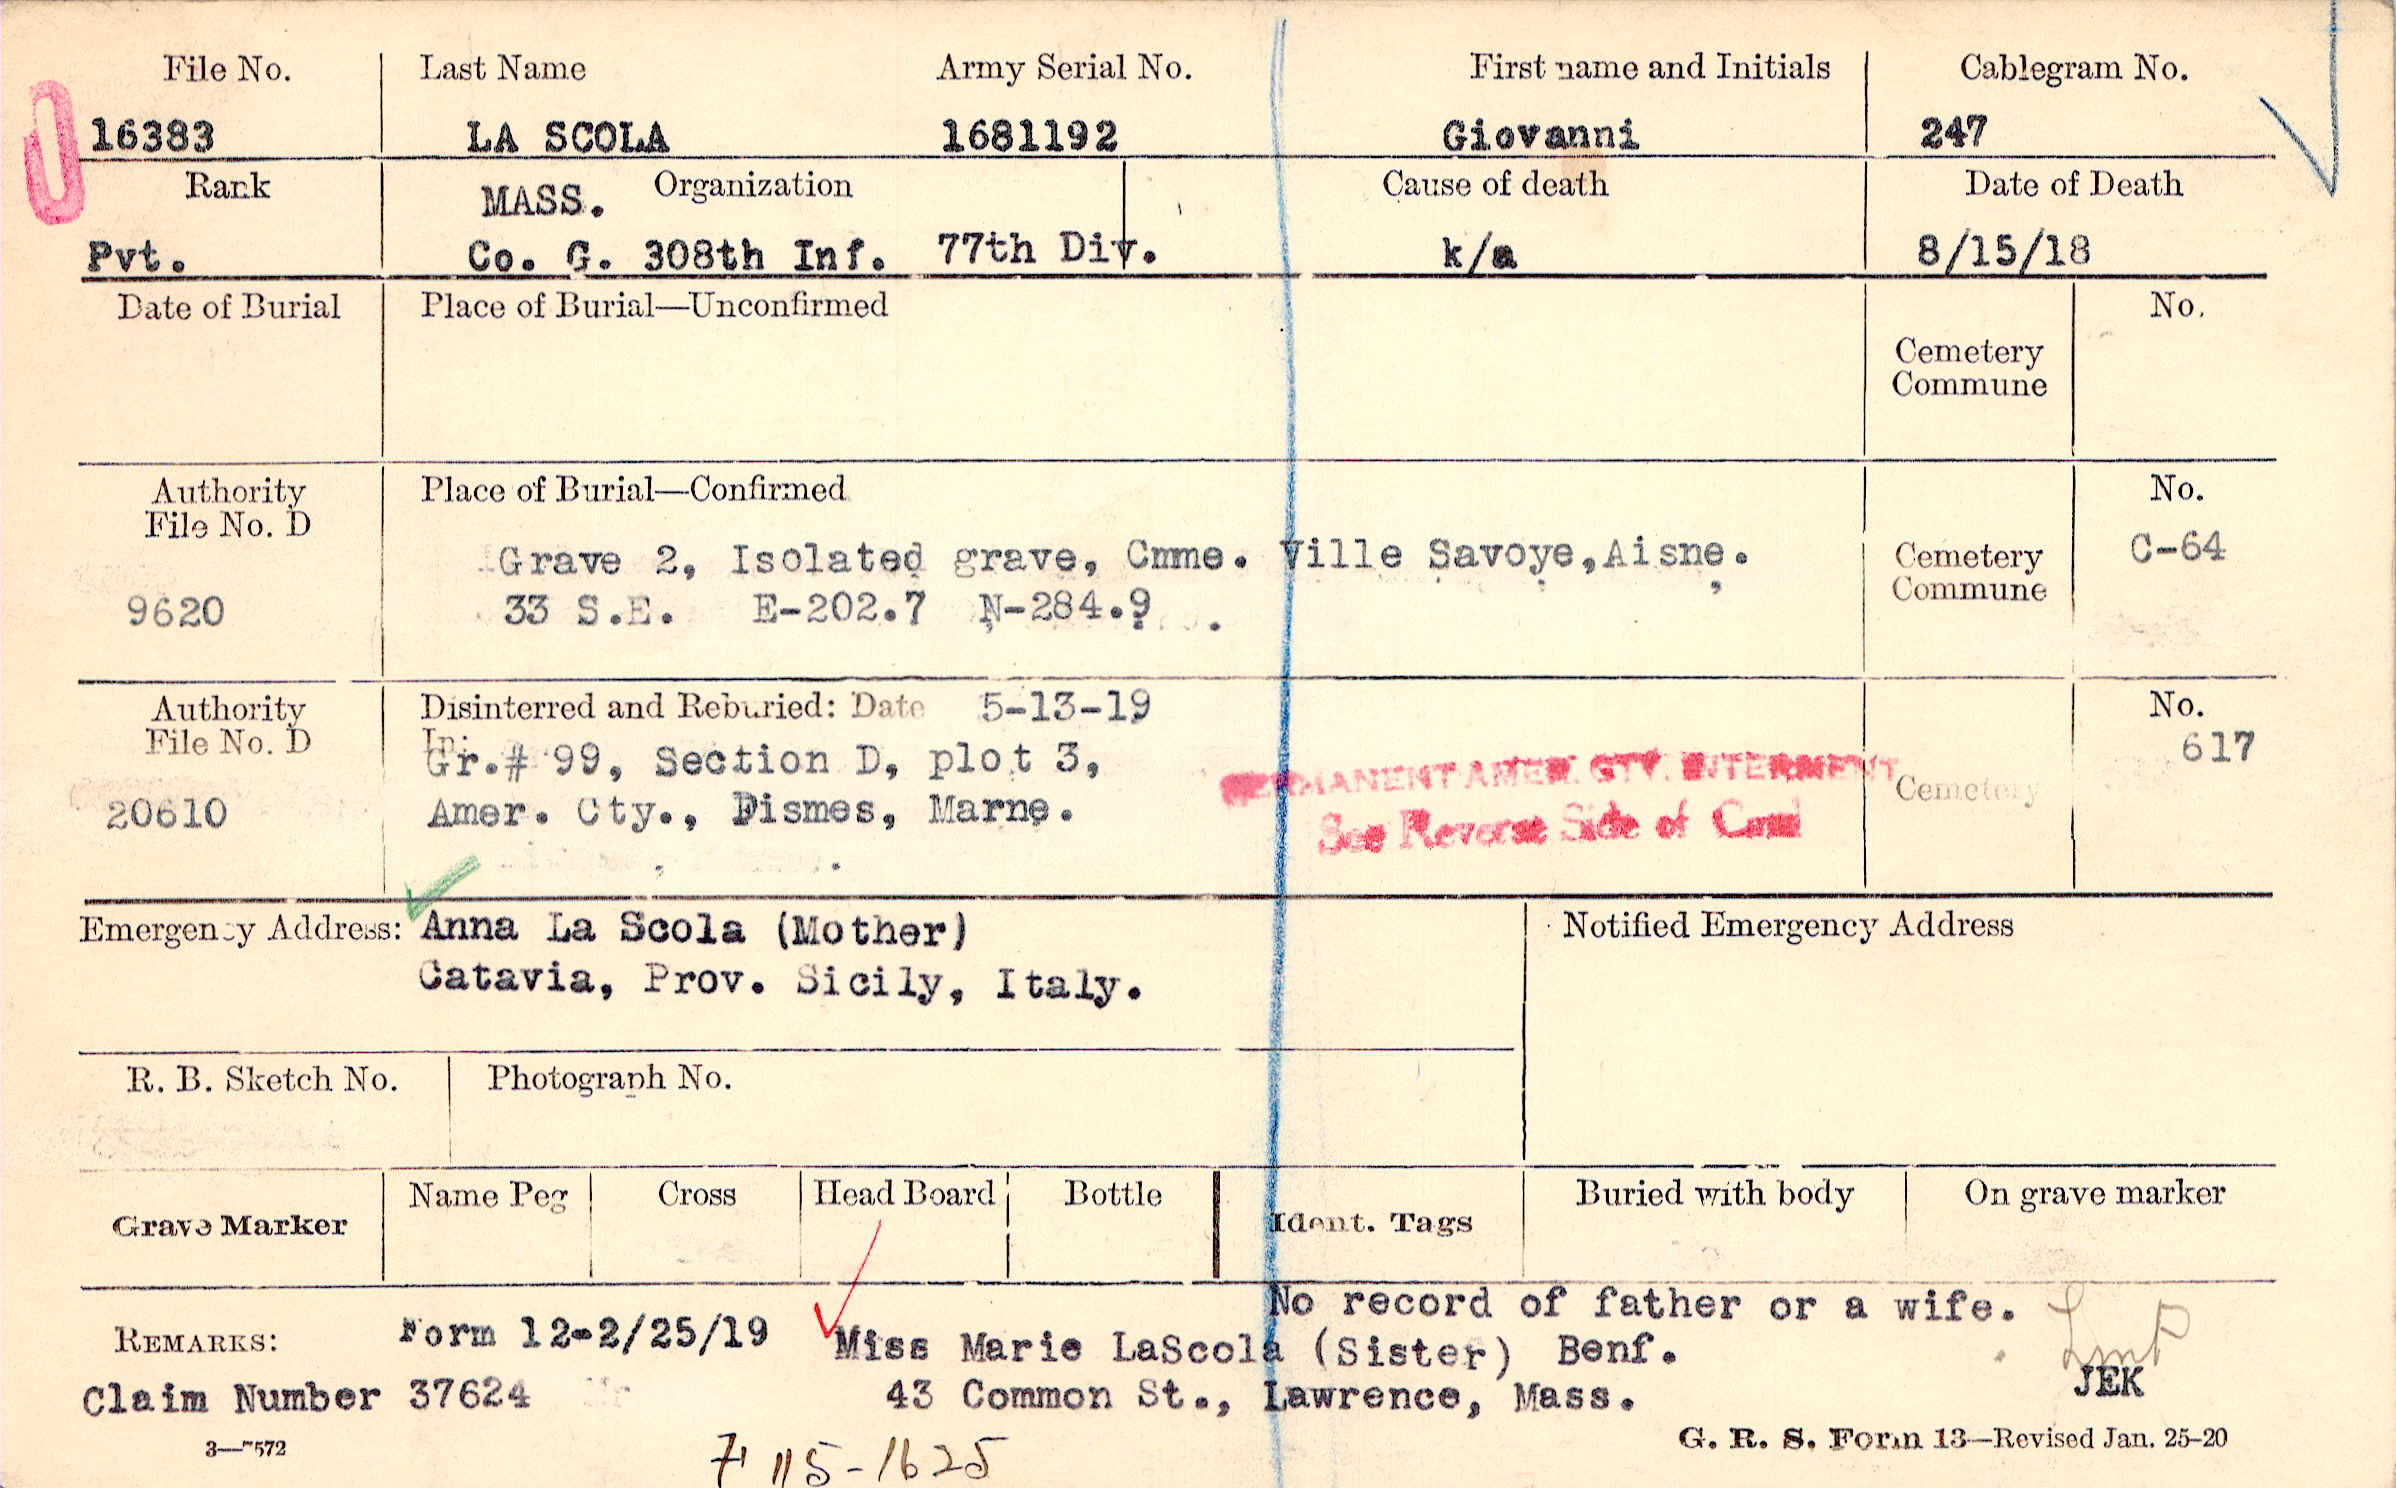 File No. Last Name Army Serial No. First name and Initials Cablegram No.
16383 LA SCOLA 1681192 Giovanni 247
Rank MASS. Organization Cause of death Date of Death
Pvt. Co. G. 308th Inf. 77th Div. k/a 8/15/18
Date of Burial Place of Burial—Unconfirmed No.
Cemetery
Commune
Authority Place of Burial—Confirmed No.
File No. D
Grave 2, Isolated grave, Cmme. Ville Savoye, Aisne. Cemetery C-64
9620 33 S.E. E-202.7 N-284.9 Commune
Authority Disinterred and Reburied: Date 5-13-19 No.
File No. D In: 617
Gr.# 99, Section D, plot 3, PERMANENT AMER. CTY. INTERMENT Cemetery
20610 Amer. Cty., Fismes, Marne. See Reverse Side of Card
Emergency Address: Anna La Scola (Mother) Notified Emergency Address
Catavia, Prov. Sicily, Italy.
R. B. Sketch No. Photograph No.
Grave Marker Name Peg Cross Head Board Bottle Ident. Tags Buried with body On grave marker
No record of father or a wife.
REMARKS: Form 12-2/25/19 Miss Marie LaScola (Sister) Benf.
JEK
Claim Number 37624 43 Common St., Lawrence, Mass.
3—7572 G. R. S. Form 13—Revised Jan. 25-20
115-1625